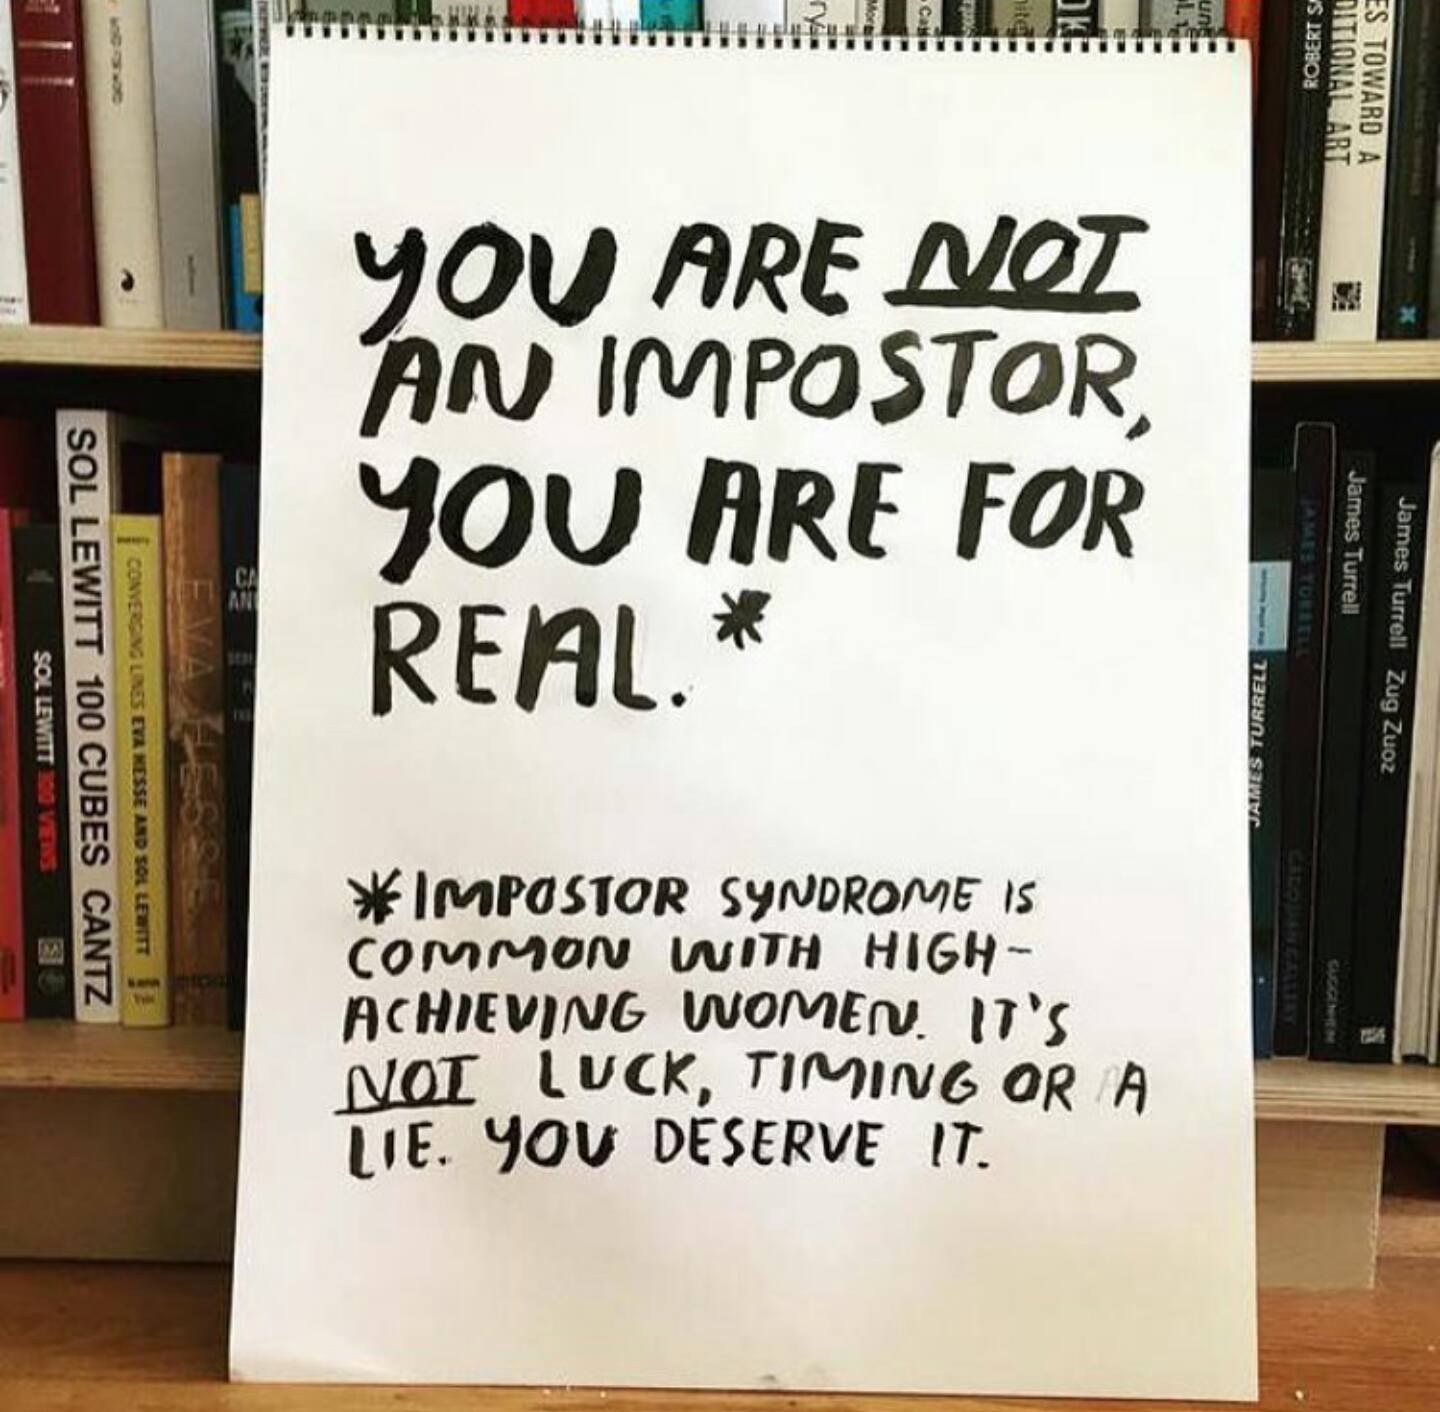 YOU ARE NOT
AN IMPOSTOR,
YOU ARE FOR
REAL.*
*IMPOSTOR SYNDROME IS
COMMON WITH HIGH-
ACHIEVING WOMEN. IT'S
NOT LUCK, TIMING OR A
LIE. YOU DESERVE IT.
SOL LEWITT 100 VIEWS
SOL LEWITT 100 CUBES CANTZ
CONVERGING LINES EVA HESSE AND SOL LEWITT
Yale
EVA HESSE
ROBERT
ES TOWARD A
DITIONAL ART
JAMES TURRELL
JAMES TURRELL
GUGGENHEIM
James Turrell
James Turrell Zug Zuoz